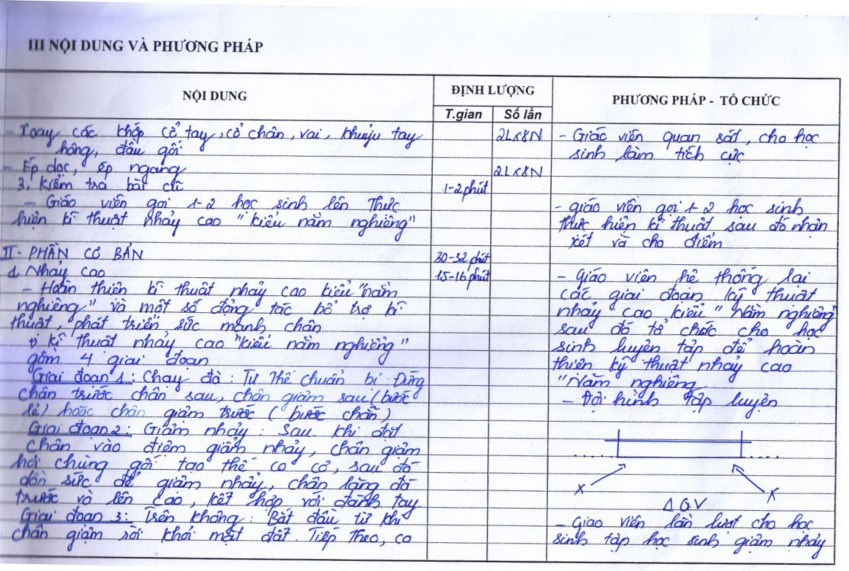 III NỘI DUNG VÀ PHƯƠNG PHÁP
NỘI DUNG
ĐỊNH LƯỢNG
T.gian
Số lần
PHƯƠNG PHÁP - TỔ CHỨC
- Xoay các khớp cổ tay, cổ chân, vai, khuỷu tay
hông, đầu gối
2Lx8N
- Ép dọc, ép ngang
2Lx8N
3. Kiểm tra bài cũ
1-2 phút
- Giáo viên gọi 1-2 học sinh lên thực
hiện kĩ thuật nhảy cao "kiểu nằm nghiêng"
II - PHẦN CƠ BẢN
30-32 phút
1. Nhảy cao
15-16 phút
- Hoàn thiện kĩ thuật nhảy cao kiểu "nằm
nghiêng" và một số động tác bổ trợ kĩ
thuật, phát triển sức mạnh chân
kĩ thuật nhảy cao "kiểu nằm nghiêng"
gồm 4 giai đoạn
Giai đoạn 1: Chạy đà: Tư thế chuẩn bị Đứng
chân trước chân sau, chân giậm sau (bước
lẻ) hoặc chân giậm trước (bước chẵn)
Giai đoạn 2: Giậm nhảy: Sau khi đặt
chân vào điểm giậm nhảy, chân giậm
hơi chùng gối tạo thế co cơ, sau đó
dồn sức để giậm nhảy, chân lăng đá
trước và lên cao, kết hợp với đánh tay
Giai đoạn 3: Trên không: Bắt đầu từ khi
chân giậm rời khỏi mặt đất. Tiếp theo, co
- Giáo viên quan sát, cho học
sinh làm tích cực
- giáo viên gọi 1-2 học sinh
thực hiện kĩ thuật, sau đó nhận
xét và cho điểm
- Giáo viên hệ thống lại
các giai đoạn kỹ thuật
nhảy cao kiểu "nằm nghiêng"
sau đó tổ chức cho học
sinh luyện tập để hoàn
thiện kỹ thuật nhảy cao
"Nằm nghiêng
- Đội hình tập luyện
x x
Δ GV
- Giáo viên lần lượt cho học
sinh tập học sinh giậm nhảy